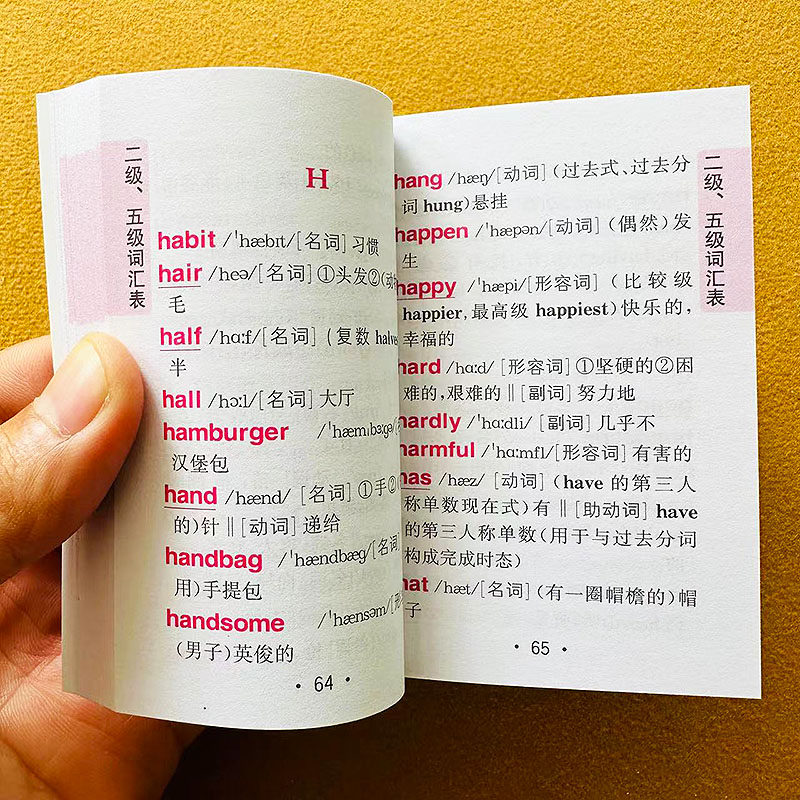 二级、五级词汇表
H
habit /ˈhæbɪt/[名词] 习惯
hair /heə/[名词] ①头发②(动
毛
half /hɑːf/[名词] (复数 halve
半
hall /hɔːl/[名词] 大厅
hamburger /ˈhæmɪbɜːɡə/
汉堡包
hand /hænd/ [名词] ①手②
的)针‖[动词] 递给
handbag /ˈhændbæɡ/[名词]
用)手提包
handsome /ˈhænsəm/[形
(男子)英俊的
· 64 ·
二级、五级词汇表
hang /hæŋ/[动词] (过去式、过去分
词 hung)悬挂
happen /ˈhæpən/[动词] (偶然)发
生
happy /ˈhæpi/[形容词] (比较级
happier,最高级 happiest)快乐的,
幸福的
hard /hɑːd/ [形容词] ①坚硬的②困
难的,艰难的‖[副词] 努力地
hardly /ˈhɑːdli/ [副词] 几乎不
harmful /ˈhɑːmfl/[形容词] 有害的
has /hæz/ [动词] (have 的第三人
称单数现在式)有‖[助动词] have
的第三人称单数(用于与过去分词
构成完成时态)
hat /hæt/[名词] (有一圈帽檐的)帽
子
· 65 ·